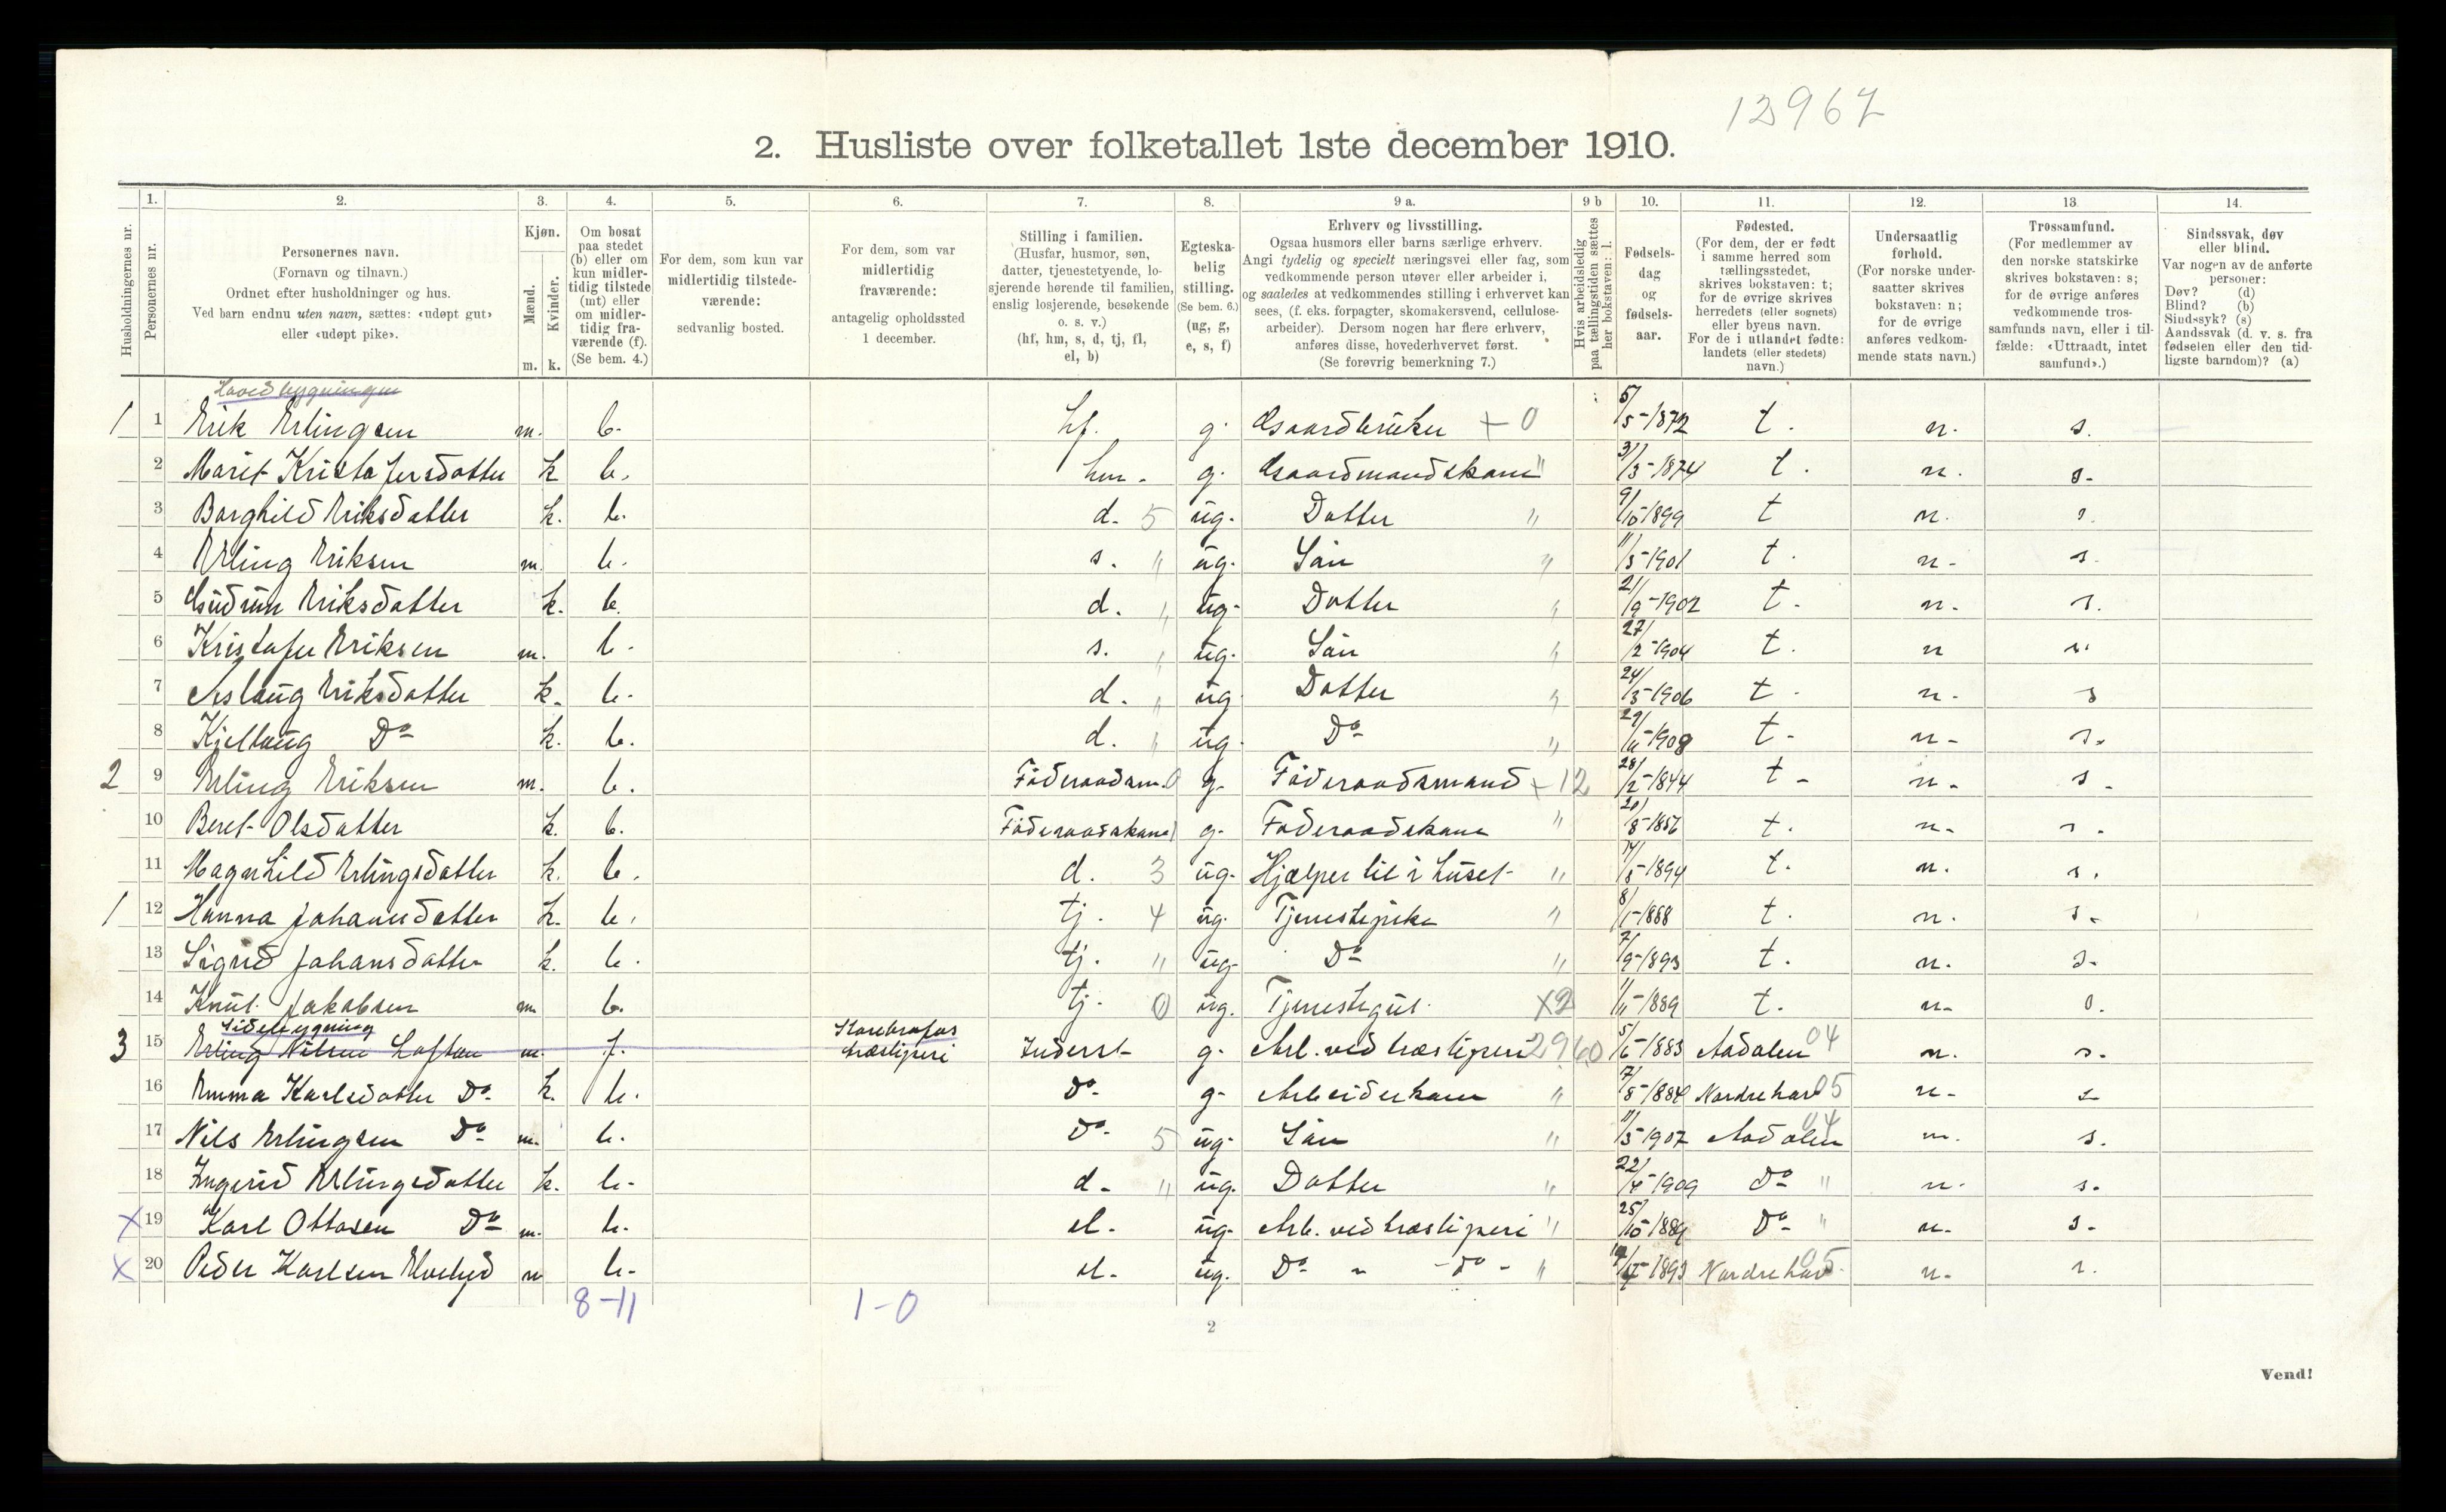 12967
2. Husliste over folketallet 1ste december 1910.
Husholdningernes nr.
1. Personernes nr.
2. Personernes navn.
(Fornavn og tilnavn.)
Ordnet efter husholdninger og hus.
Ved barn endnu uten navn, sættes: «udøpt gut»
eller «udøpt pike».
3. Kjøn.
Mænd. Kvinder.
m. k.
4. Om bosat
paa stedet
(b) eller om
kun midler-
tidig tilstede
(mt) eller
om midler-
tidig fra-
værende (f).
(Se bem. 4.)
5. For dem, som kun var
midlertidig tilstede-
værende:
sedvanlig bosted.
6. For dem, som var
midlertidig
fraværende:
antagelig opholdssted
1 december.
7. Stilling i familien.
(Husfar, husmor, søn,
datter, tjenestetyende, lo-
sjerende hørende til familien,
enslig losjerende, besøkende
o. s. v.)
(hf, hm, s, d, tj, fl,
el, b)
8. Egteska-
belig
stilling.
(Se bem. 6.)
(ug, g,
e, s, f)
9 a. Erhverv og livsstilling.
Ogsaa husmors eller barns særlige erhverv.
Angi tydelig og specielt næringsvei eller fag, som
vedkommende person utøver eller arbeider i,
og saaledes at vedkommendes stilling i erhvervet kan
sees, (f. eks. forpagter, skomakersvend, cellulose-
arbeider). Dersom nogen har flere erhverv,
anføres disse, hovederhvervet først.
(Se forøvrig bemerkning 7.)
9 b Hvis arbeidsledig
paa tællingstiden sættes
her bokstaven: l.
10. Fødsels-
dag
og
fødsels-
aar.
11. Fødested.
(For dem, der er født
i samme herred som
tællingsstedet,
skrives bokstaven: t;
for de øvrige skrives
herredets (eller sognets)
eller byens navn.
For de i utlandet fødte:
landets (eller stedets)
navn.)
12. Undersaatlig
forhold.
(For norske under-
saatter skrives
bokstaven: n;
for de øvrige
anføres vedkom-
mende stats navn.)
13. Trossamfund.
(For medlemmer av
den norske statskirke
skrives bokstaven: s;
for de øvrige anføres
vedkommende tros-
samfunds navn, eller i til-
fælde: «Uttraadt, intet
samfund».)
14. Sindssvak, døv
eller blind.
Var nogen av de anførte
personer:
Døv? (d)
Blind? (b)
Sindssyk? (s)
Aandssvak (d. v. s. fra
fødselen eller den tid-
ligste barndom)? (a)
Hovedbygningen
1 1 Erik Erlingsen m. b. hf. g. Gaardbruker + 0 5/5-1872 t. n. s.
2 Marit Kristofersdatter k b. hm. g. Gaardmandskone " 31/3-1874 t. n. s.
3 Borghild Eriksdatter k. b. d. 5 ug. Datter " 9/10 1899 t n. s.
4 Erling Eriksen m. b. s. " ug. Søn " 11/3-1901 t. n. s.
5 Gudrun Eriksdatter k. b. d. " ug. Datter " 21/9-1902 t. n. s.
6 Kristofer Eriksen m. b. s. " ug. Søn " 27/2-1904 t. n s.
7 Aslaug Eriksdatter k. b. d. " ug. Datter " 24/3-1906 t. n. s
8 Kjellaug Do k. b. d. " ug. Do " 29/11-1908 t. n. s.
2 9 Erling Eriksen m. b. Føderaadsm. 0 g. Føderaadsmand + 12 28/2-1844 t. n. s.
10 Beret Olsdatter k. b. Føderaadskone g. Føderaadskone " 20/8-1856 t. n. s.
11 Magnhild Erlingsdatter k. b. d. 3 ug. Hjælper til i huset " /5-1894 t. n. s.
1 12 Hanna Johansdatter k. b. tj. 4 ug. Tjenestepike " 8/1-1888 t. n. s.
13 Sigrid Johansdatter k. b. tj. " ug. Do " 7/9-1893 t. n. s.
14 Knut Jakobsen m. b. tj. 0 ug. Tjenestegut X2 1/11-1889 t. n. s.
Sidebygning
3 15 Erling Nilsen Loftan m. f. træsliperi Inderst g. Arb. ved træsliperi 2960 5/6-1883 Aadalen 04 n. s.
16 Emma Karlsdatter Do k. b. Do g. Arbeiderkone " 7/8-1884 Nordrehov 05 n. s
17 Nils Erlingsen Do m. b. Do 5 ug. Søn " 11/3 1907 Aadalen 04 n. s.
18 Ingerid Erlingsdatter k. b. d. " ug. Datter " 22/4-1909 Do " n. s.
X 19 Karl Ottosen Do m. b. el. ug. Arb. ved træsliperi " 25/10-1889 Do " n. s.
X 20 Peder Karlsen m b. el. ug. Do " do " 1893 Nordrehov 05 n. s.
8-11 1-0
2
Vend!